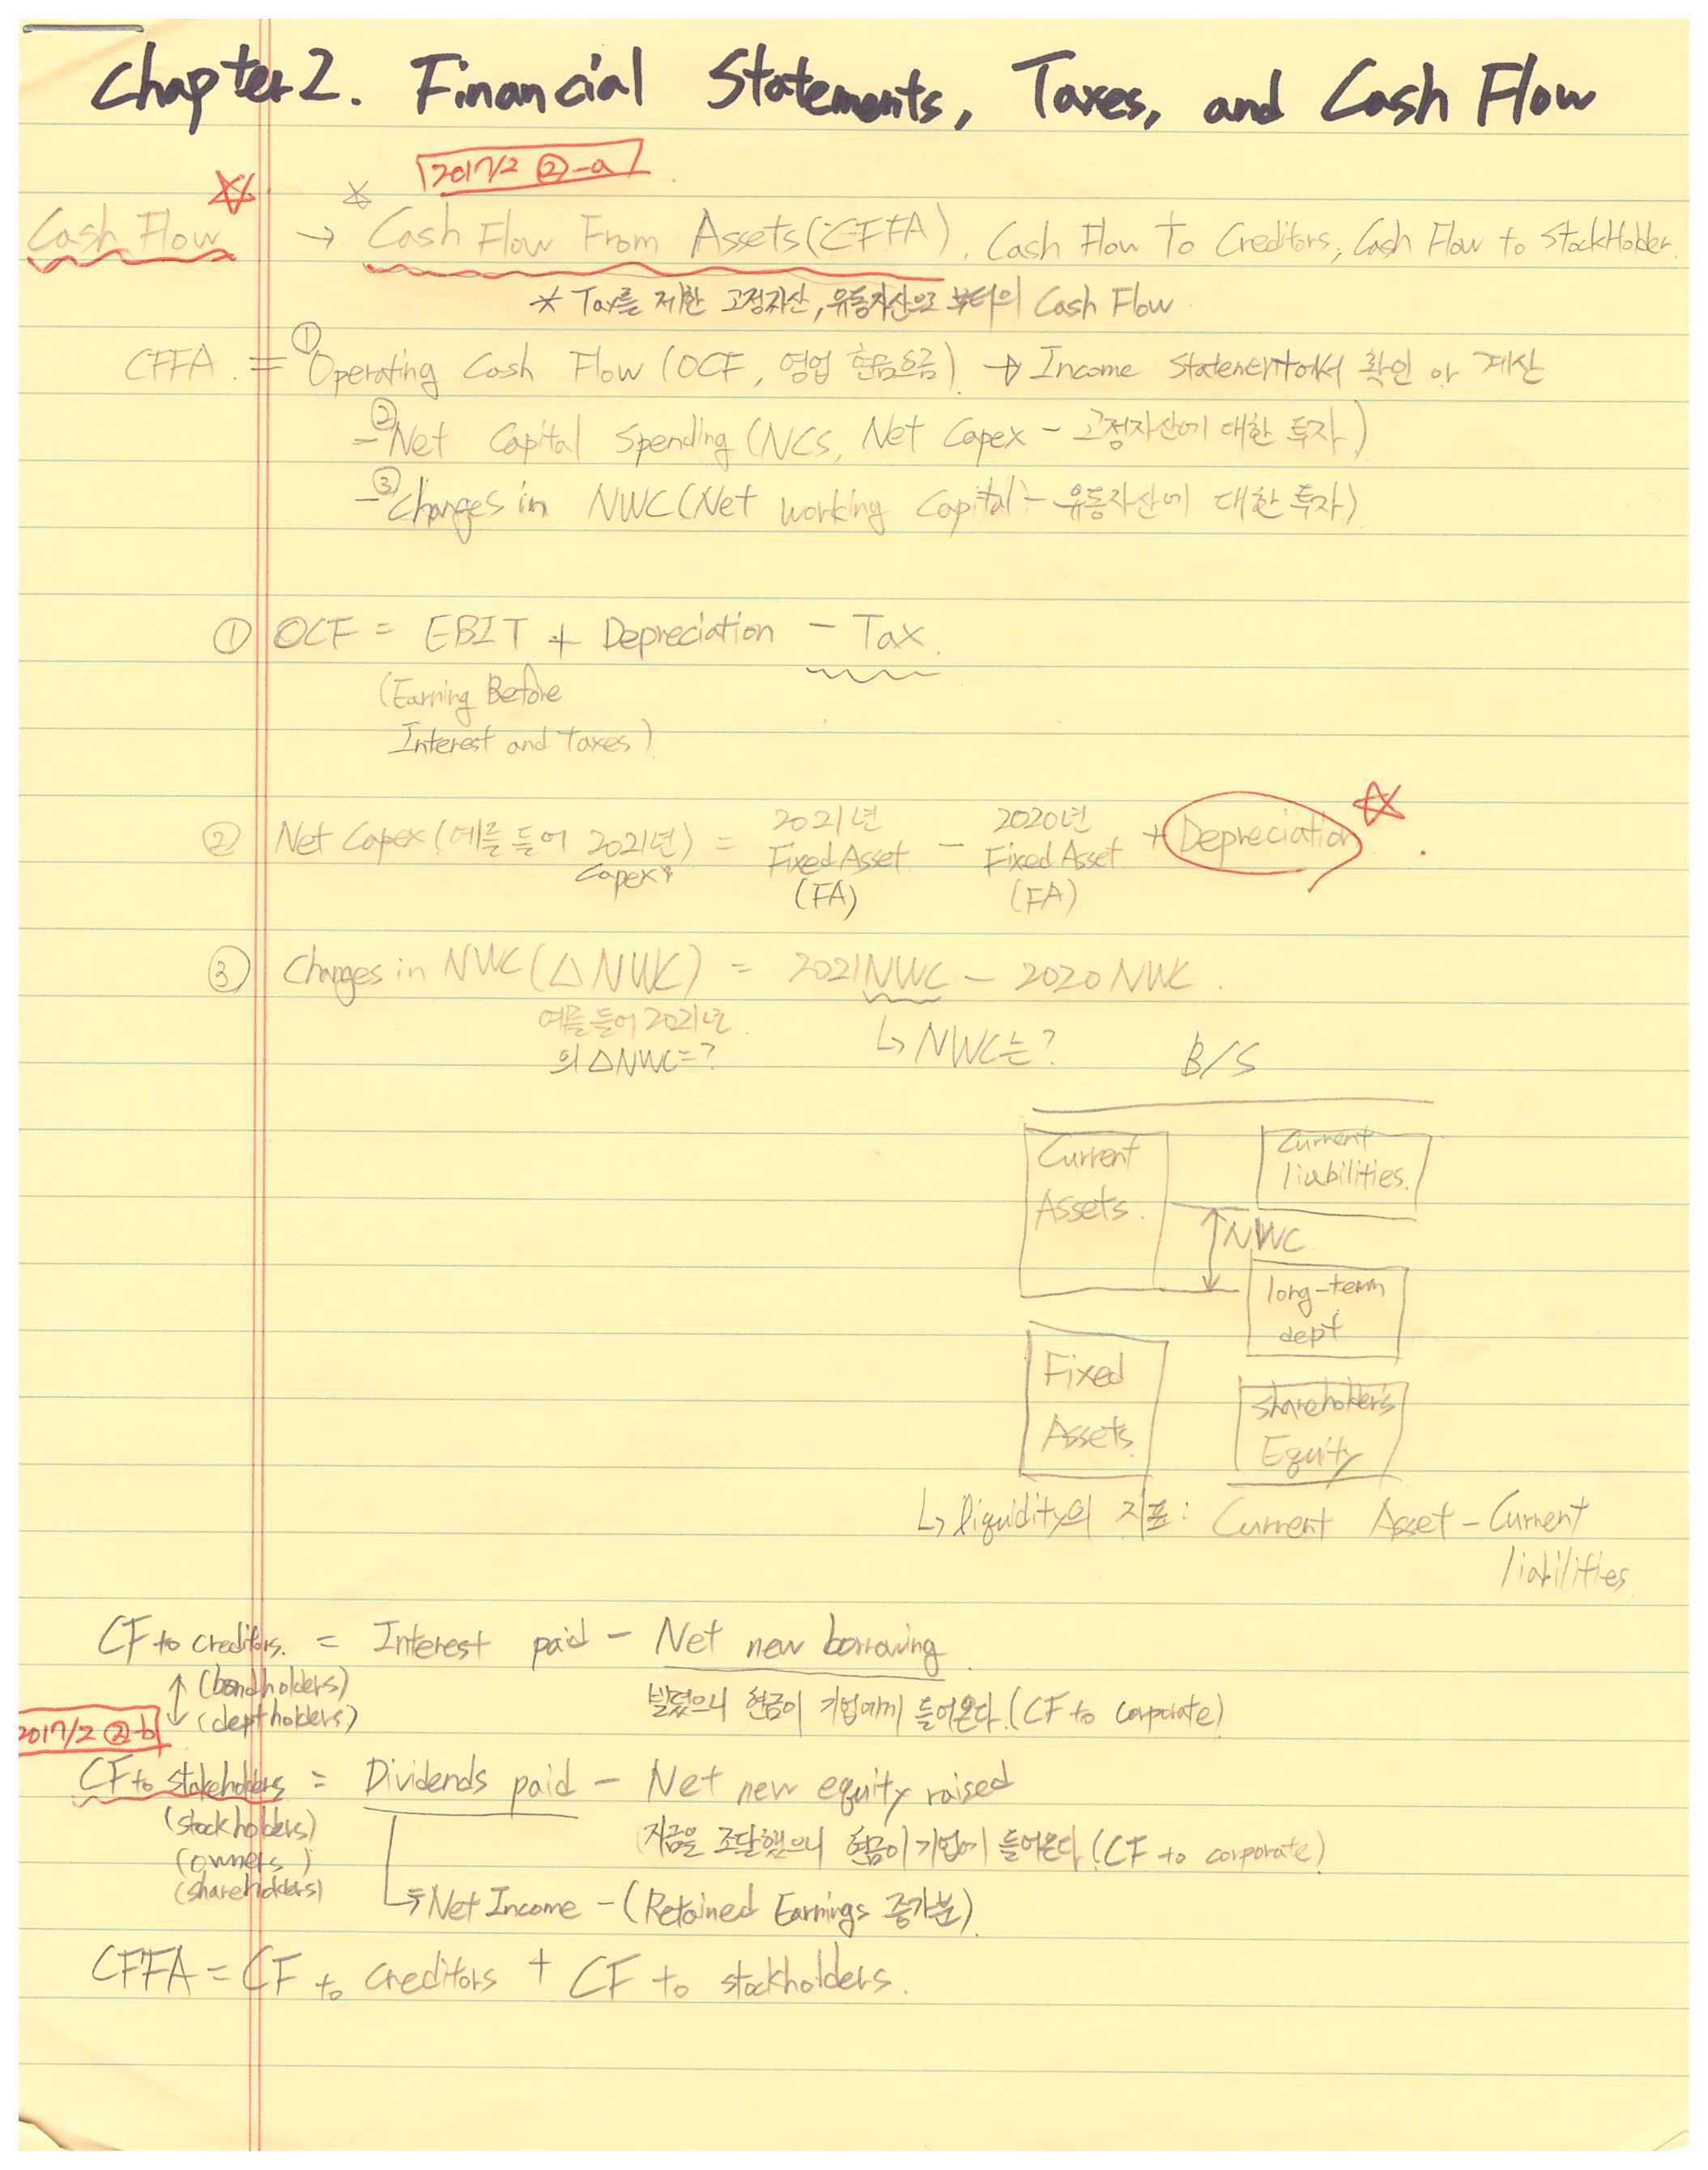 Chapter 2. Financial Statements, Taxes, and Cash Flow
2017/2 ②-a
Cash Flow → Cash Flow From Assets(CFFA). Cash Flow To Creditors, Cash Flow to StockHolder.
* Tax를 제한 고정자산, 유동자산으로 부터의 Cash Flow
CFFA = ① Operating Cash Flow (OCF, 영업 현금흐름) → Income Statement에서 확인 or 계산
- ② Net Capital Spending (NCS, Net Capex - 고정자산에 대한 투자)
- ③ Changes in NWC (Net Working Capital) - 유동자산에 대한 투자)
① OCF = EBIT + Depreciation - Tax.
(Earning Before
Interest and Taxes)
② Net Capex (예를 들어 2021년) = 2021년 Fixed Asset (FA) - 2020년 Fixed Asset (FA) + Depreciation.
Capex
③ Changes in NWC (△NWC) = 2021NWC - 2020 NWC.
예를 들어 2021년
의 △NWC=?
↳ NWC는?
B/S
Current
Assets.
Current
liabilities.
NWC
long-term
dept
Fixed
Assets.
shareholder's
Equity
↳ liquidity의 지표: Current Asset - Current
liabilities
CF to creditors. = Interest paid - Net new borrowing
(bondholders)
(deptholders)
빌렸으니 현금이 기업에게 들어온다. (CF to corporate)
2017/2 ②-b
CF to stakeholders = Dividends paid - Net new equity raised
(stockholders)
(owners)
(shareholders)
자금을 조달했으니 현금이 기업에 들어온다. (CF to corporate)
↳ Net Income - (Retained Earnings 증가분)
CFFA = CF to creditors + CF to stockholders.